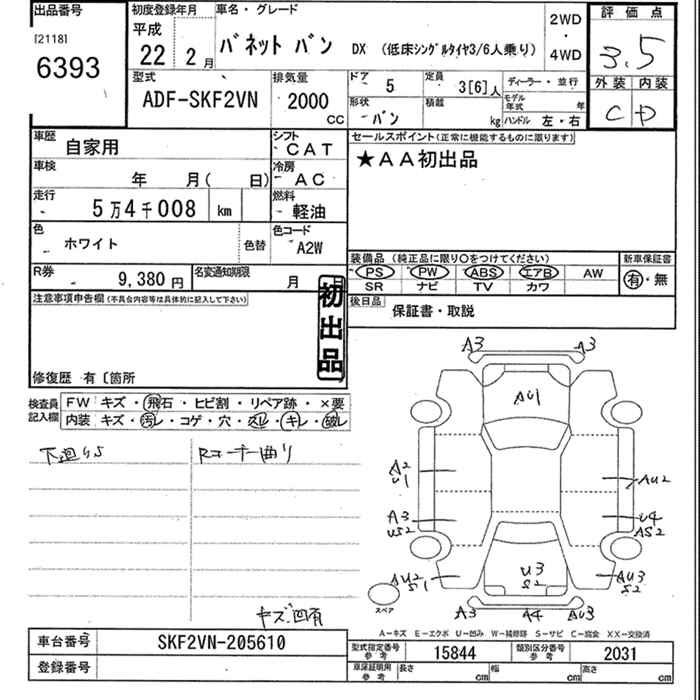 出品番号
[2118]
6393
初度登録年月
平成
22 2月
車名・グレード
バネット バン DX (低床シングルタイヤ3/6人乗り)
2WD
・
4WD
評価点
3.5
外装 内装
C D
型式
ADF-SKF2VN
排気量
2000
CC
ドア 5
定員 3[6]人
ディーラー・並行
形状 バン
積載 kg
モデル年式 年
ハンドル 左・右
車歴 自家用
シフト CAT
車検 年 月( 日)
冷房 AC
走行 5万4千008 km
燃料 軽油
色 ホワイト 色替
色コード A2W
R券 9,380円
名変通知期限 月
セールスポイント(正常に機能するものに限ります)
★AA初出品
装備品 (純正品に限り〇をつけてください)
PS PW ABS エアB AW
SR ナビ TV カワ
新車保証書
有・無
後日品 保証書・取説
注意事項申告欄(不具合内容等は具体的に記入して下さい)
初出品
修復歴 有〔箇所
検査員記入欄
FW キズ・飛石・ヒビ割・リペア跡・×要
内装 キズ・汚レ・コゲ・穴・スレ・キレ・破レ
下廻りS
Rコーナー曲り
キズ凹有
A3 A3
AU1
A2
U1
AU2
A3
US2
U4
AS2
AU2
S1
U3
S2
AU3
S2
スペア
A3 A4 AU3
A-キズ E-エクボ U-凹み W-補修跡 S-サビ C-腐食 XX-交換済
車台番号 SKF2VN-205610
登録番号
型式指定番号 参考 15844
類別区分番号 参考 2031
車庫証明用 参考 長さ cm 幅 cm 高さ cm